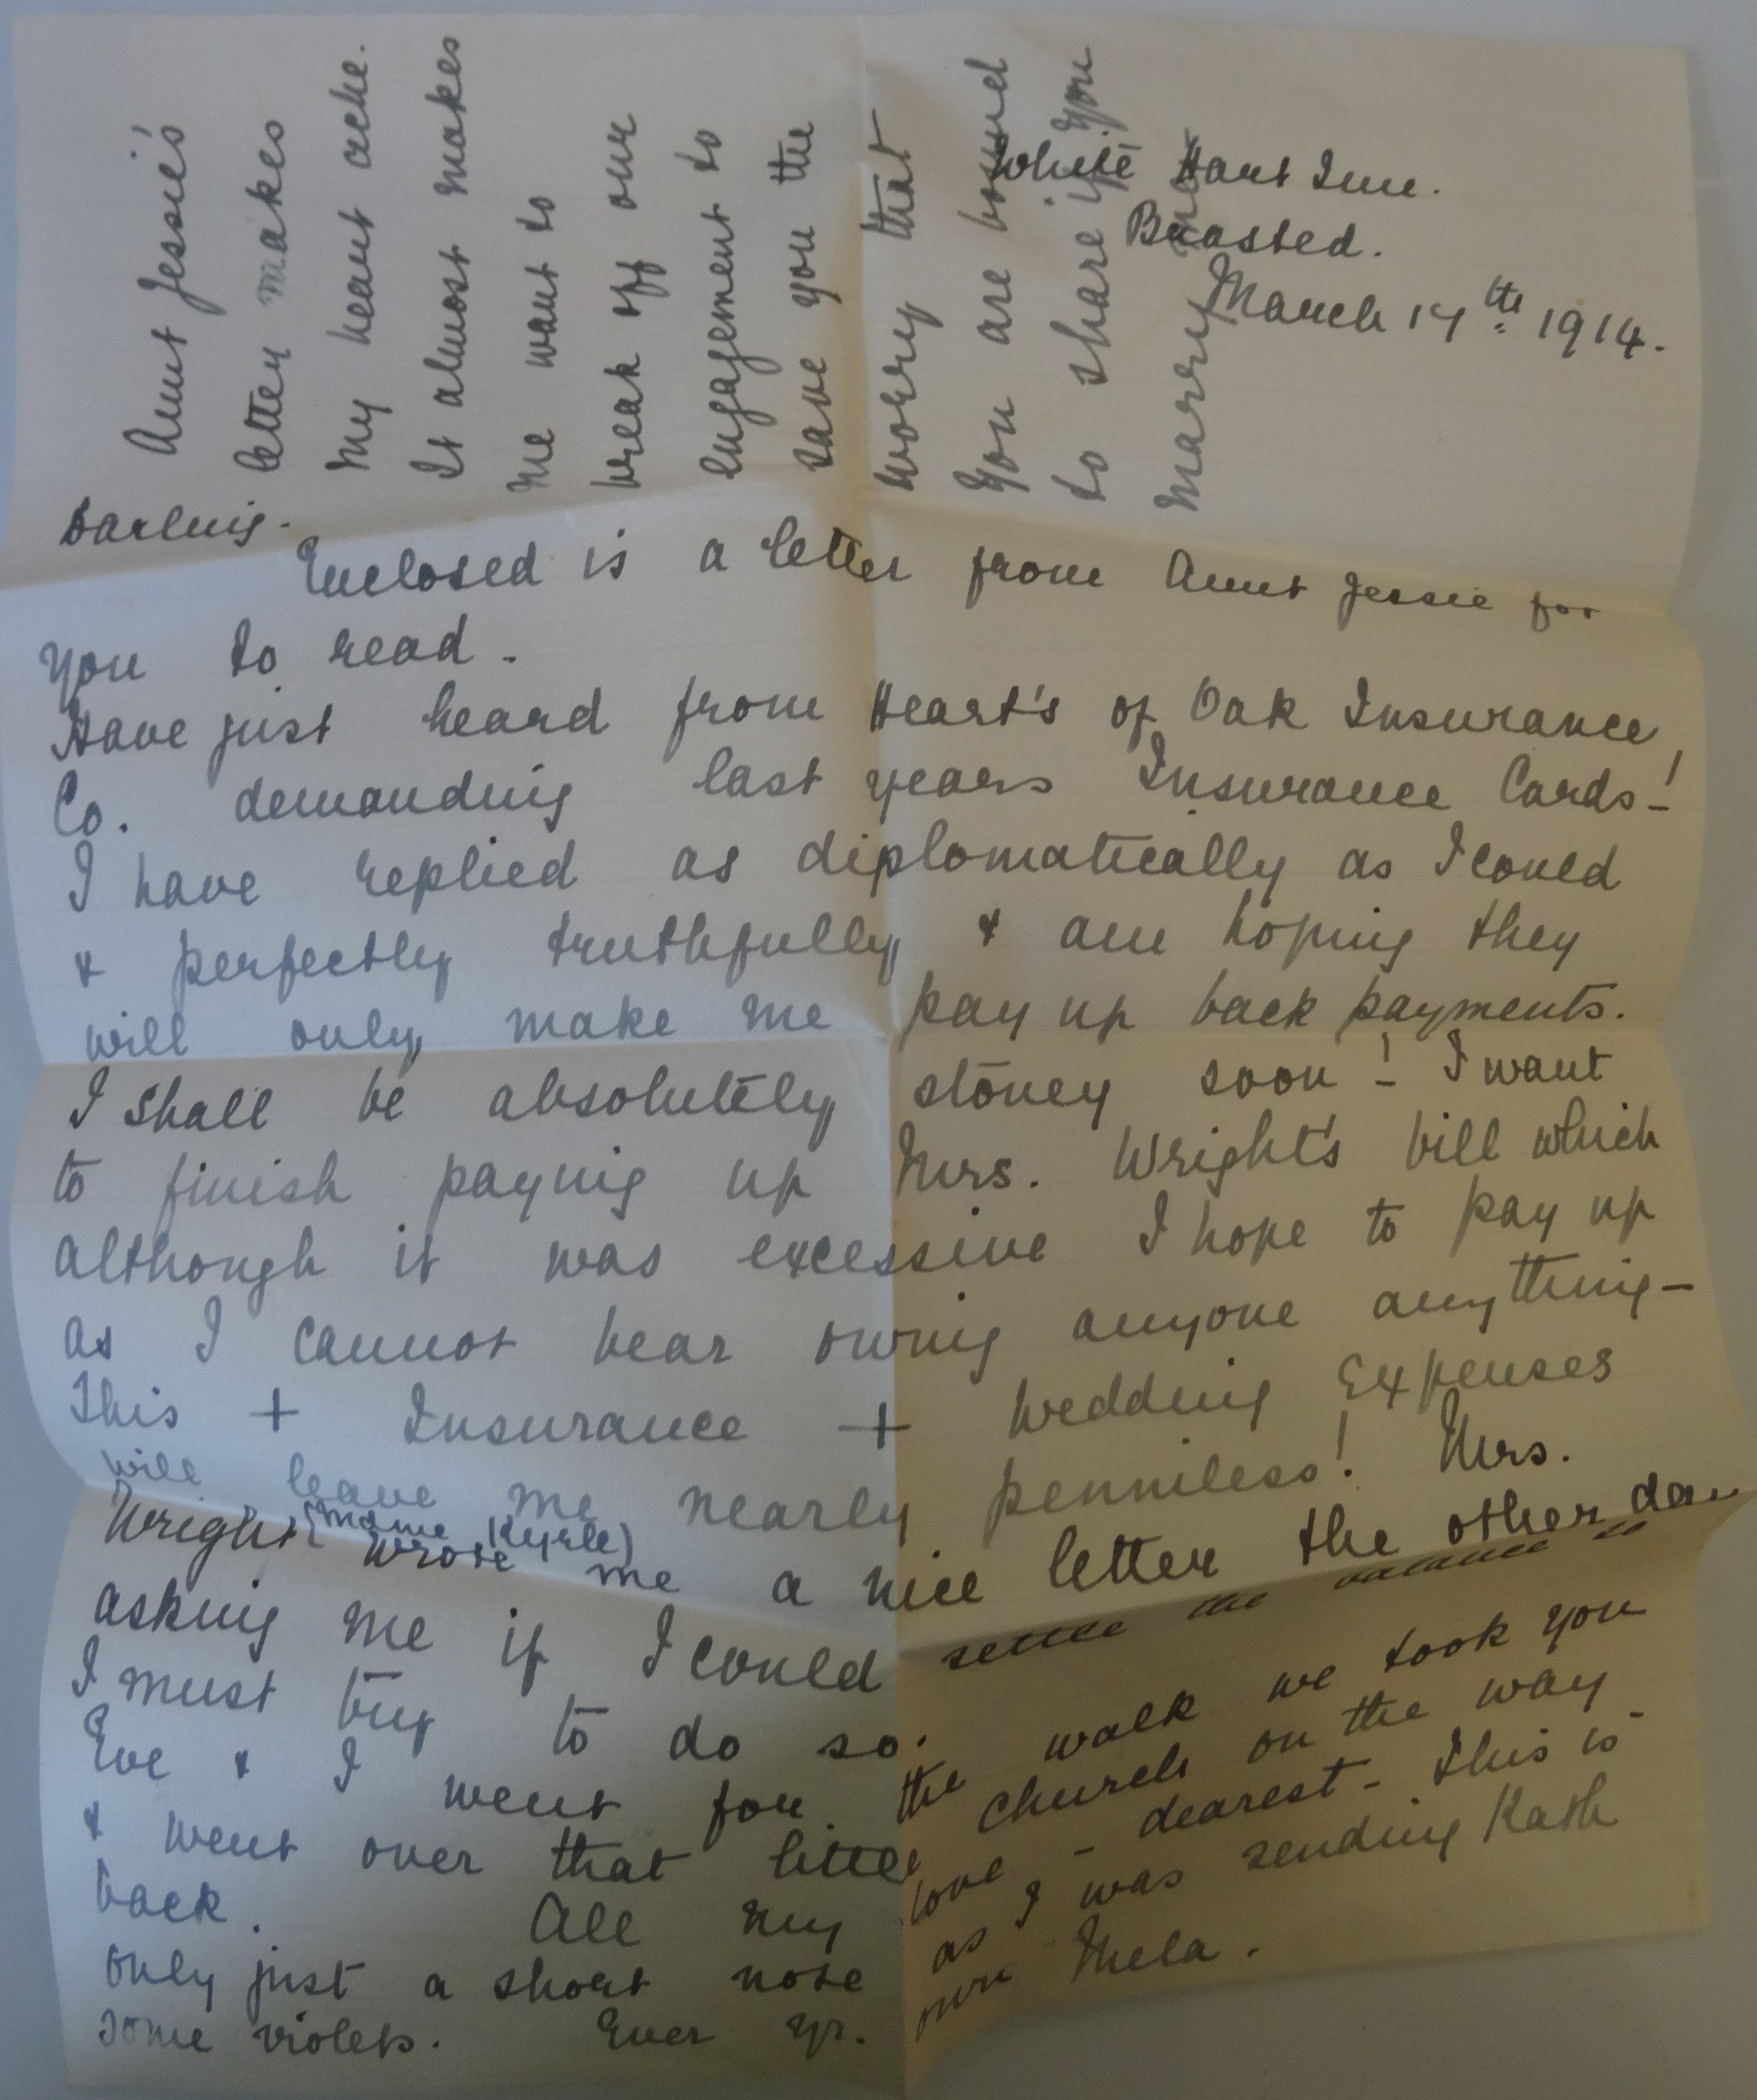 White Hart Inn.
Brasted.
March 17th 1914.
Darling.
Enclosed is a letter from Aunt Jessie for
you to read.
Have just heard from Heart's of Oak Insurance
Co. demanding last years Insurance Cards!
I have replied as diplomatically as I could
& perfectly truthfully & am hoping they
will only make me pay up back payments.
I shall be absolutely stoney soon! I want
to finish paying up Mrs. Wright's bill which
although it was excessive I hope to pay up
as I cannot bear owing anyone anything -
This + Insurance + Wedding Expenses
will leave me nearly penniless! Mrs.
Wright (Mdme Kyrle) wrote me a nice letter the other day
asking me if I could settle the balance so
I must try to do so.
Eve & I went for the walk we took you
& went over that little church on the way
back. All my love - dearest - This is
only just a short note as I was sending Kath
some violets. Ever yr. own Mela.
Aunt Jessie's
letter makes
my heart ache.
It almost makes
me want to
break off our
engagement to
save you the
worry that
you are bound
to share if you
marry me